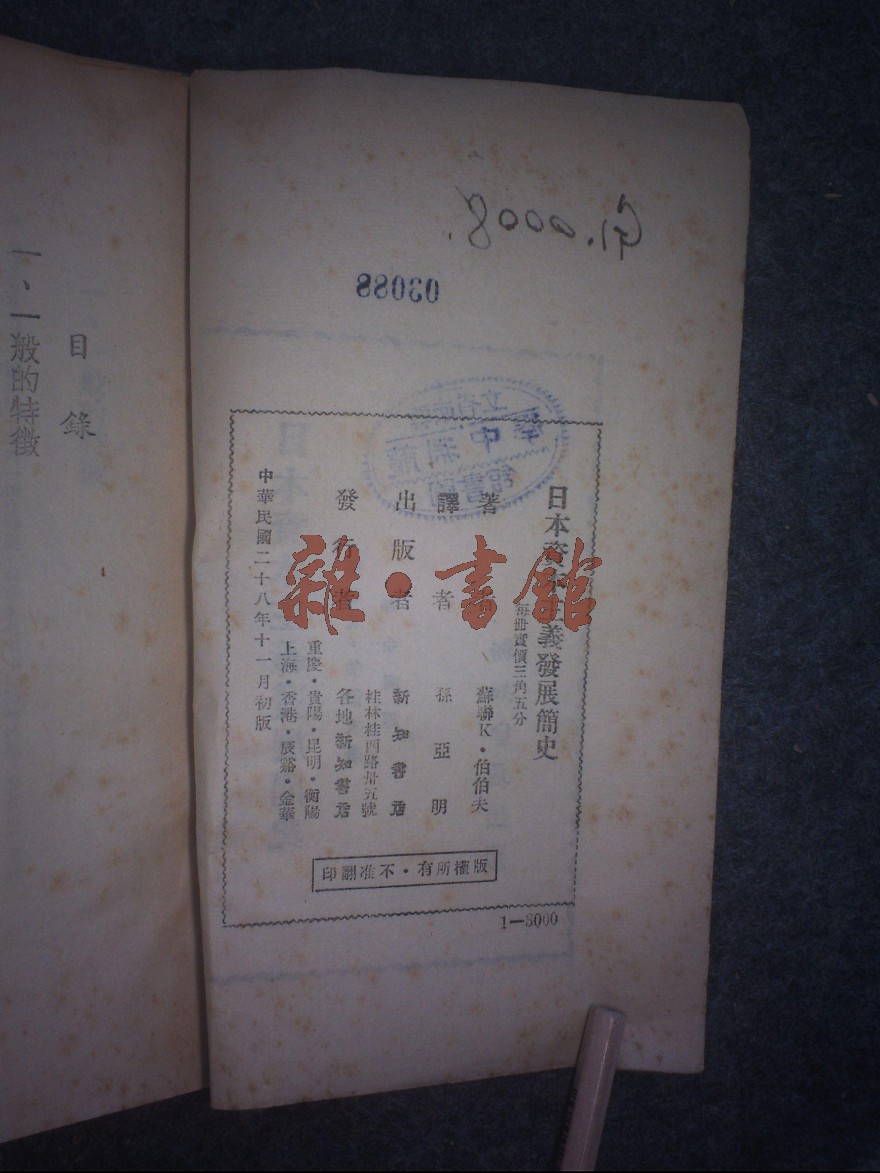 03088
日本資本主義發展簡史
每冊實價三角五分
著者 蘇聯K·伯伯夫
譯者 孫亞明
出版者 新知書店
桂林桂西路卅五號
發行者 各地新知書店
重慶·貴陽·昆明·衡陽
上海·香港·辰谿·金華
中華民國二十八年十一月初版
版權所有·不准翻印
1—3000
雜·書館
目錄
一、一般的特徵